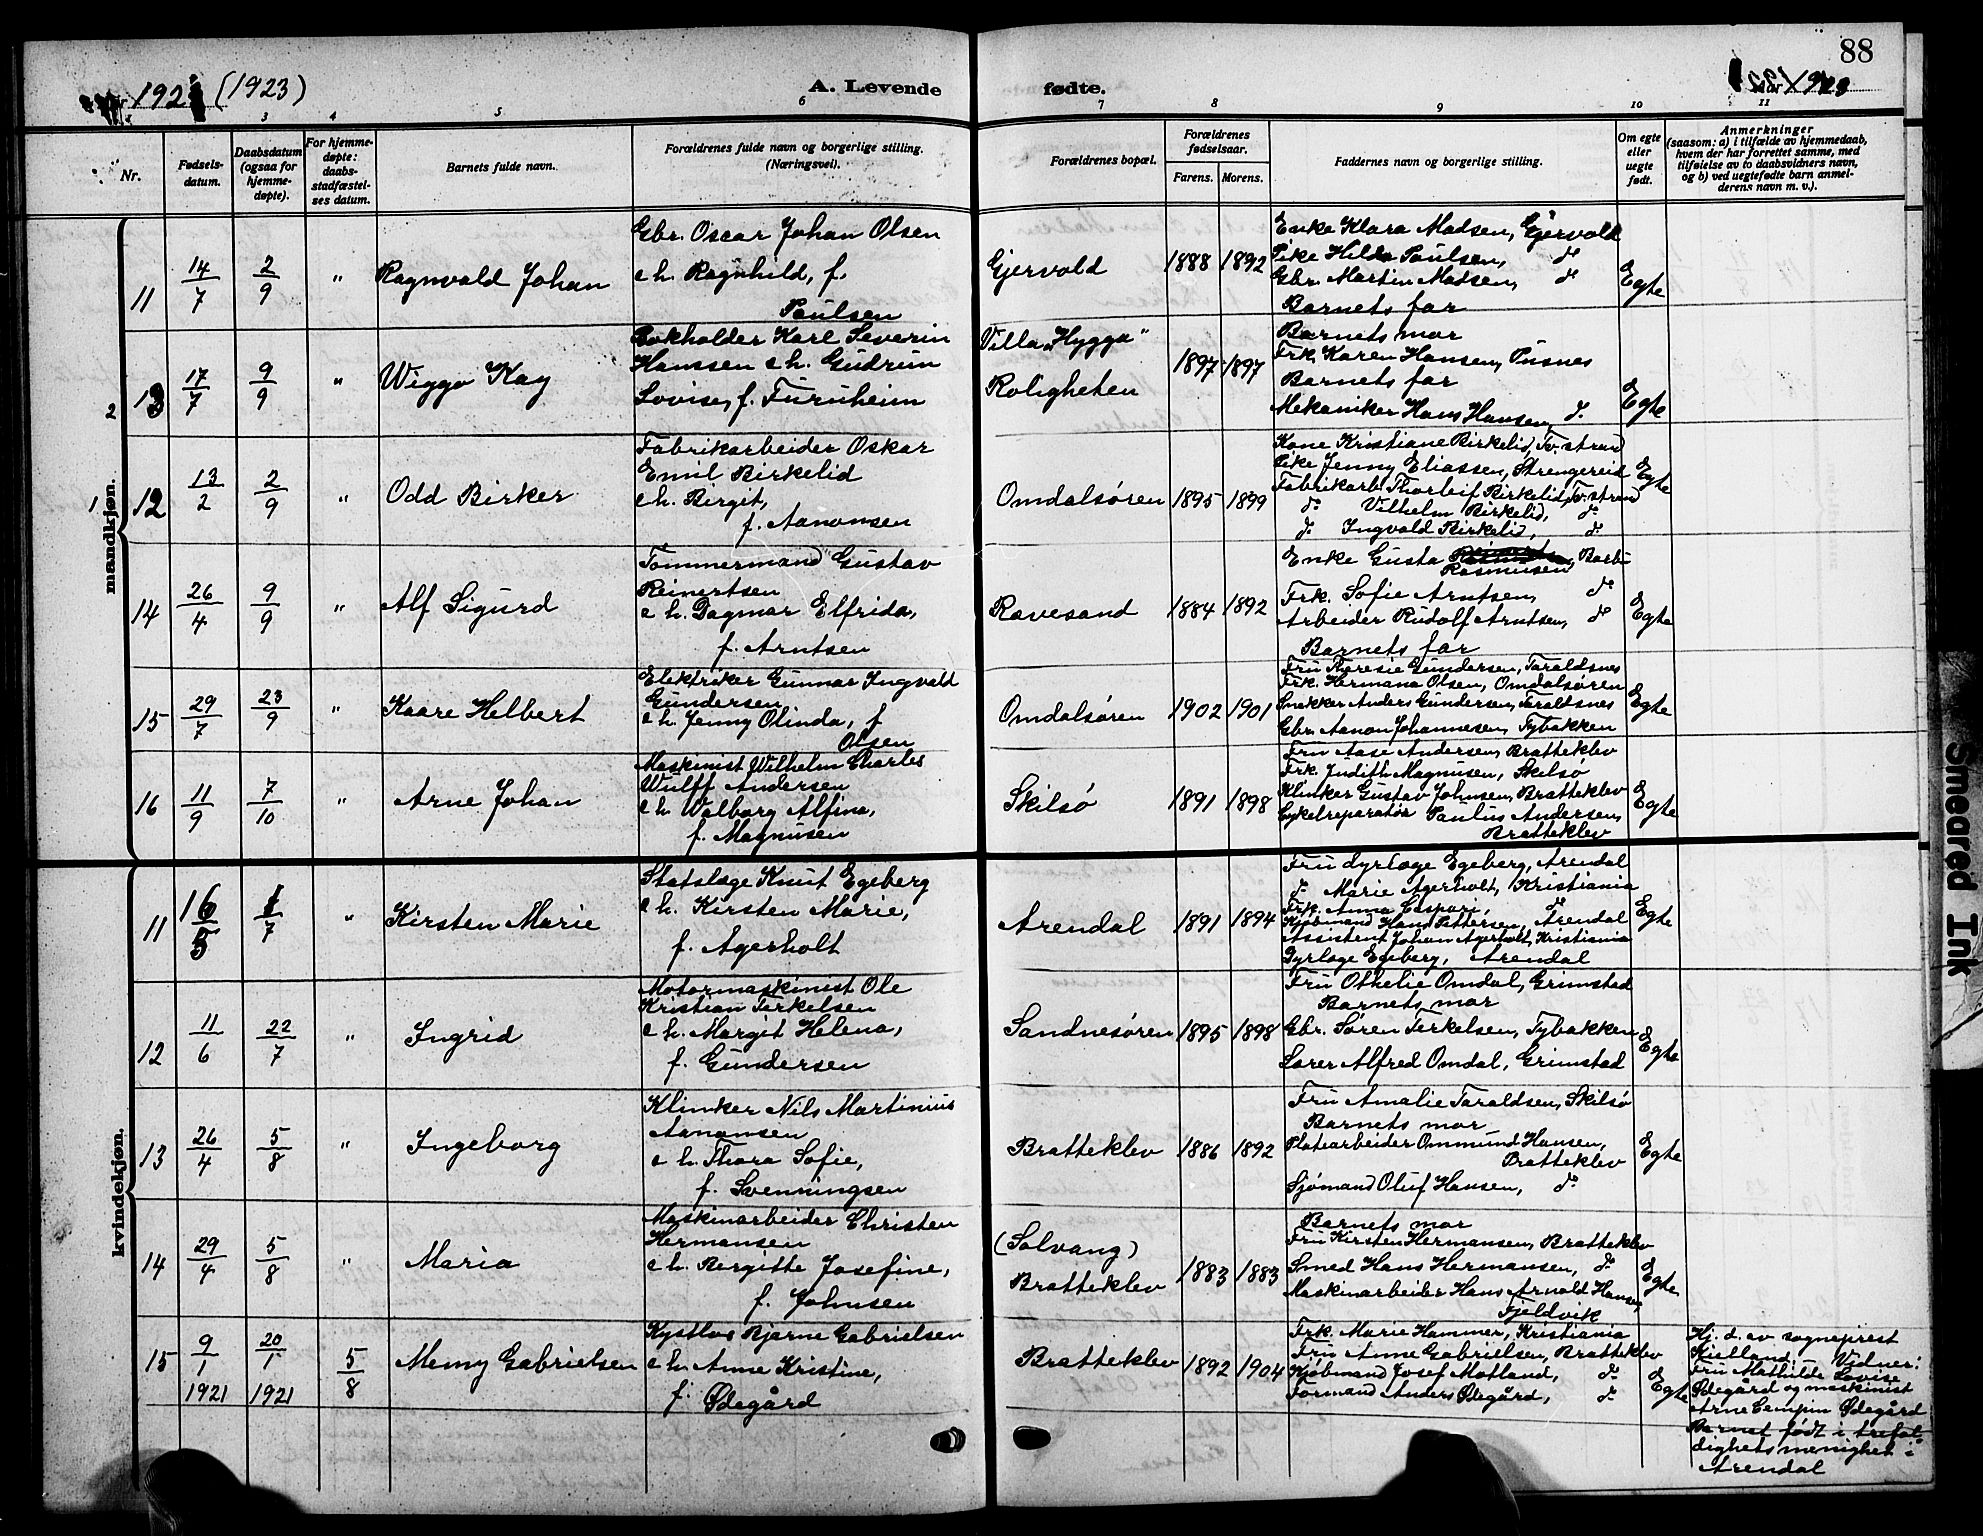 88
1923 (1923)
A. Levende
fødte.
1923
3 4 5 6 7 8 9 10 11
Nr.
Fødsels-
datum.
Daabsdatum
(ogsaa for
hjemme-
døpte).
For hjemme-
døpte:
daabs-
stadfæstel-
ses datum.
Barnets fulde navn.
Forældrenes fulde navn og borgerlige stilling.
(Næringsvei).
Forældrenes bopæl.
Forældrenes
fødselsaar.
Farens. Morens.
Faddernes navn og borgerlige stilling.
Om egte
eller
uegte
født.
Anmerkninger
(saasom: a) i tilfælde av hjemmedaab,
hvem der har forrettet samme, med
tilføielse av to daabsvidners navn,
og b) ved uegtefødte barn anmel-
derens navn m. v.).
mandkjøn.
11 14/7 2/9 " Ragnvald Johan
Gbr. Oscar Johan Olsen
e h. Ragnhild, f.
Paulsen
Gjervold 1888 1892
Enke Klara Madsen, Gjervold
Pike Hilda Paulsen, d°
Gbr. Martin Madsen, d°
Barnets far
Egte
2 13 17/7 9/9 " Wiggo Kay
Bokholder Karl Severin
Hanssen e h. Gudrun
Lovise, f. Furuheim
Villa "Hygga"
Roligheten 1897 1897
Barnets mor
Frk. Karen Hansen, Pusnes
Barnets far
Mekaniker Hans Hansen, d°
Egte
1 12 13/2 2/9 " Odd Birker
Fabrikarbeider Oskar
Emil Birkelid
e h. Birgit,
f. Aanonsen
Omdalsøren 1895 1899
Kone Kristiane Birkelid, Tv.strand
Pike Jenny Eliassen, Strengereid
Fabrikarb. Thorleif Birkelid, Tv.strand
d° Vilhelm Birkelid, d°
d° Ingvald Birkelid, d°
Egte
14 26/4 9/9 " Alf Sigurd
Tømmermand Gustav
Reinertsen
e h. Dagmar Elfrida,
f. Arntsen
Ravesand 1884 1892
Enke Gusta Rasmusen, Barbu
Frk. Sofie Arntsen, d°
Arbeider Rudolf Arntsen, d°
Barnets far
Egte
15 29/7 23/9 " Kaare Helbert
Elektriker Gunnar Ingvald
Gundersen
e h. Jenny Olinda, f
Olsen
Omdalsøren 1902 1901
Fru Theresie Gundersen, Taraldsnes
Frk. Hermana Olsen, Omdalsøren
Snekker Anders Gundersen, Taraldsnes
Gbr. Aanon Johannesen, Tybakken
Egte
16 11/9 7/10 " Arne Johan
Maskinist Wilhelm Charles
Wulff Andersen
e h. Walborg Alfina,
f. Magnusen
Skilsø 1891 1898
Fru Aase Andersen, Bratteklev
Frk. Judith Magnusen, Skilsø
Klinker Gustav Johnsen, Bratteklev
Cykelreparatør Paulus Andersen,
Bratteklev
Egte
kvindekjøn.
11 16/5 1/7 " Kirsten Marie
Statslæge Knut Egeberg
e h. Kirsten Marie,
f. Agerholt
Arendal 1891 1894
Fru dyrlæge Egeberg, Arendal
d° Marie Agerholt, Kristiania
Frk. Anna Caspari, d°
Kjøbmand Hans Pettersen, Arendal
Assistent Johan Agerholt, Kristiania
Dyrlæge Egeberg, Arendal
Egte
12 11/6 22/7 " Ingrid
Motormaskinist Ole
Kristian Terkelsen
e h. Margit Helena,
f. Gundersen
Sandnesøren 1895 1898
Fru Othelie Omdal, Grimstad
Barnets mor
Gbr. Søren Terkelsen, Tybakken
Lærer Alfred Omdal, Grimstad
Egte
13 26/4 5/8 " Ingeborg
Klinker Nils Martinius
Aanonsen
e h. Thora Sofie,
f. Svenningsen
Bratteklev 1886 1892
Fru Amalie Taraldsen, Skilsø
Barnets mor
Platearbeider Ommund Hansen,
Bratteklev
Sjømand Oluf Hansen, d°
Egte
14 29/4 5/8 " Maria
Maskinarbeider Christen
Hermansen
e h. Bergitte Josefine,
f. Johnsen
(Solvang)
Bratteklev 1883 1883
Barnets mor
Fru Kirsten Hermansen, Bratteklev
Smed Hans Hermansen, d°
Maskinarbeider Hans Arnold Hansen,
Fjeldvik
Egte
15 9/1 1921 20/1 1921 5/8 Memy Gabrielsen
Kystlos Bjarne Gabrielsen
e h. Anne Kristine,
f. Ødegård
Bratteklev 1892 1904
Frk. Marie Hammer, Kristiania
Fru Anne Gabrielsen, Bratteklev
Kjøbmand Josef Motland, d°
Formand Anders Ødegård, d°
Egte
Hj. d. av sogneprest
Kielland. Vidner:
Fru Mathilde Lovise
Ødegård og maskinist
Arne Ødegård
Barnet født i trefol-
dighets menighet i
Arendal
Smeared Ink